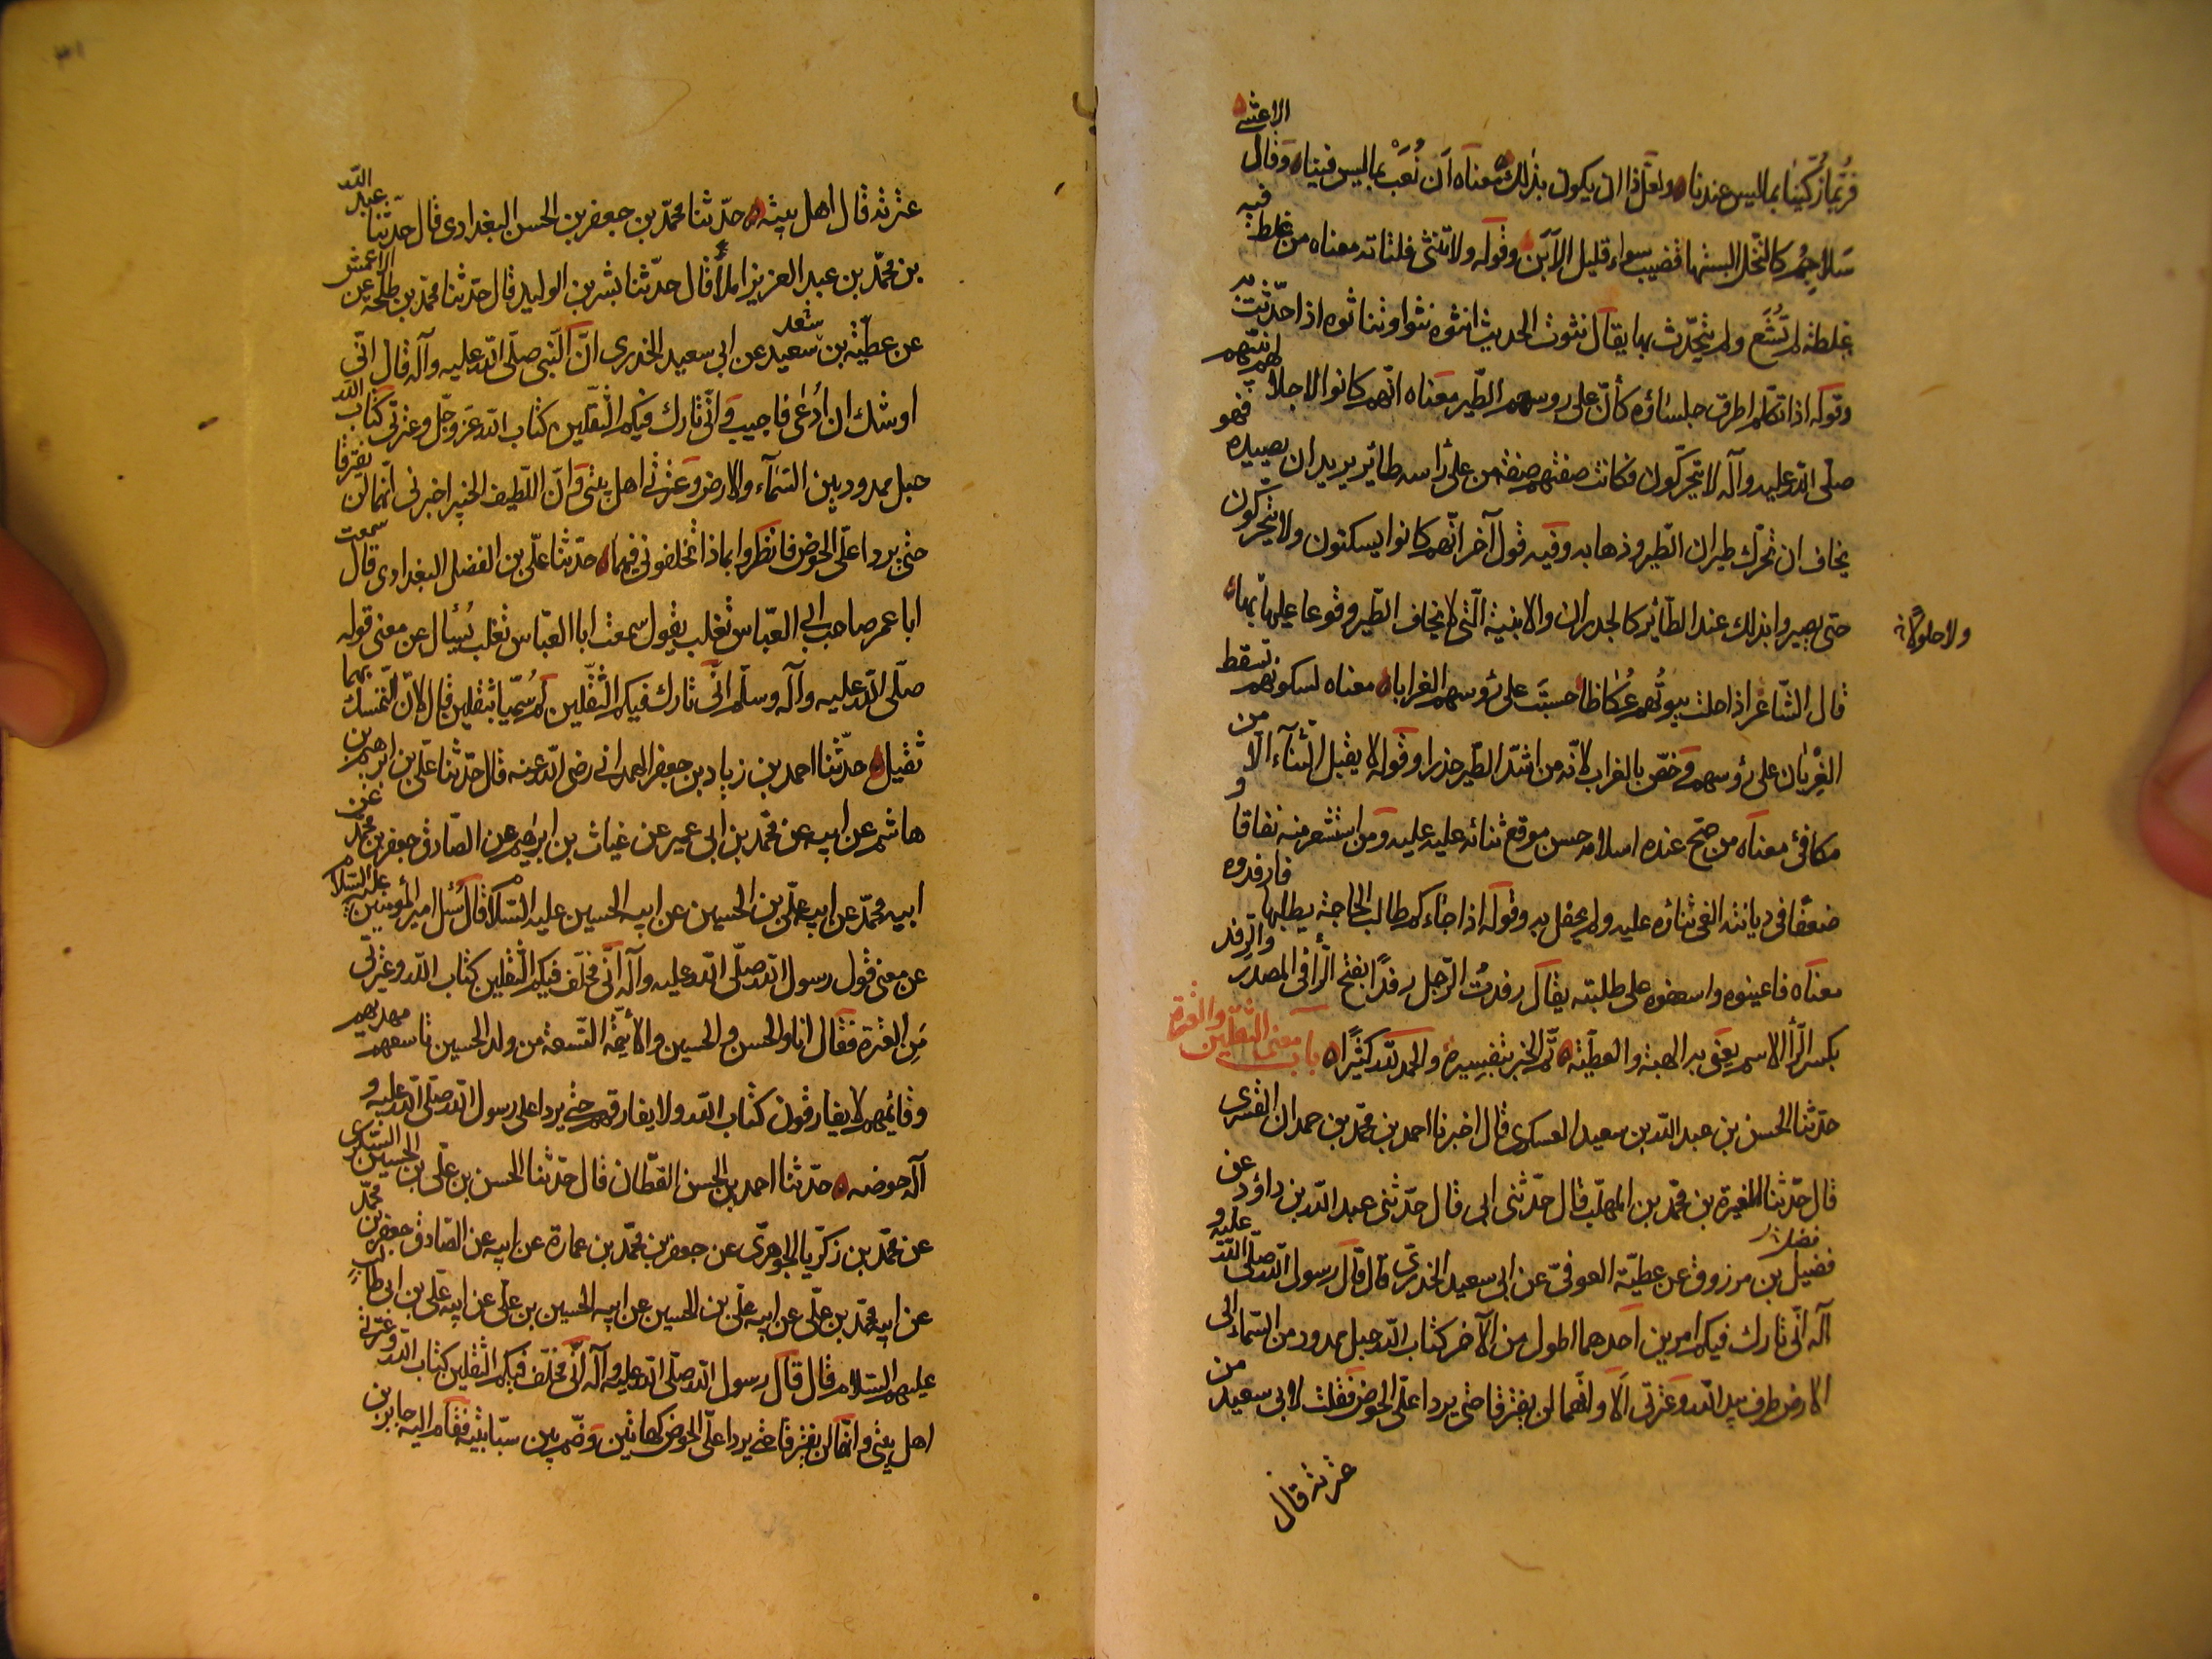 فرُبّما زُكّينا بما ليس عندنا ولعلّ ذا ان يكون بذلك معناه اَن نُعَبْ بما ليس فينا وقال الاعشى
سَلاجِمُ كالنّخل البستها قضيب سراء قليل الاَبَن وقوله ولا تنثى فلتاته معناه من غلط فيه
غلطة لم تُشَع ولم يتحدّث بها يقال نثوت الحديث انثوه نثوا ونثا ثوه اذا حدّثت به
وقوله اذا تكلم اطرق جلساؤه كأنّ على روسهم الطّير معناه انّهم كانوا لاجلا لهم نبيّهم
صلّى الله عليه وآله لا يتحرّكون فكانت صفتهم صفة من على راسه طائر يريد ان يصيده فهو
يخاف ان تحرّك طيران الطّير وذهابه وفيه قول آخر انّهم كانوا يسكتون ولا يتحرّكون
حتى يصيروا بذلك عند الطّائر كالجدران والابنية الّتى لا يخاف الطّير وقوعا عليها بها
ولا حلولا
قال الشّاعر اذا حلت بيوتُهم عُكاظا حسبتَ على رؤسهم الغرابا معناه لسكونهم تسقط
الغِرْبان على رؤسهم وخصّ بالغراب لانّه من اشدّ الطّير حذرا وقوله لا يقبل الثّناء الّا من
مكافئ معناه من صحّ عنده اسلامه حسن موقع ثنائه عليه عليه ومن استشعر منه نفاقا و
ضعفا فى ديانته الغى ثناؤه عليه ولم يحفل به وقوله اذا جاءكم طالب الحاجة يطلبها فارفدوه
معناه فاعينوه واسعفوه على طلبته يقال رفدتُ الرّجل رفدًا بفتح الرّا فى المصدر والرّفد
بكسر الرّا الاسم يعنى به الهبة والعطيّة تمّ الخبر بتفسيره والحمد لله كثيرًا باب معنى الثقلين والعترة
حدّثنا الحسن بن عبد الله بن سعيد العسكرى قال اخبرنا احمد بن محمّد بن حمدان القشيرى
قال حدّثنا المغيرة بن محمّد بن المهلّب قال حدّثنى ابى قال حدّثنى عبد الله بن داؤد عن
فضيل بن مرزوق عن عطيّة العوفىّ عن ابى سعيد الخدرىّ قال قال رسول الله صلّى الله عليه و
آله انّى تارك فيكم امرين احدهما اطول من الآخر كتاب الله حبل ممدود من السّماء الى
الارض طرف بيد الله وعترتى اَلا وانّهما لن يفترقا حتى يردا علىّ الحوض فقلت لابى سعيد من
عترته قال
عترته قال اهل بيته حدّثنا محمّد بن جعفر بن الحسن البغدادى قال حدّثنا عبد الله
بن محمّد بن عبد العزيز املاءً قال حدّثنا بشر بن الوليد قال حدّثنا محمّد بن طلحة عن الاعمش
عن عطيّة بن سعيد عن ابى سعيد الخدرى انّ النّبى صلّى الله عليه وآله قال انّى
سعد
اوشك ان اُدْعٰى فاجيب وانّى تارك فيكم الثّقلين كتاب الله عزّ وجلّ وعترتى كتاب الله
حبل ممدود بين السّماء والارض وعترتى اهل بيتى وانّ اللّطيف الخبير اخبرنى انّهما لن يفترقا
حتى يردا علىّ الحوض فانظروا بماذا تخلفونى فيهما حدّثنا علىّ بن الفضل البغدادى قال سمعت
ابا عمر صاحب ابى العبّاس ثعلب يقول سمعت ابا العبّاس ثعلب يُسأل عن معنى قوله
صلّى الله عليه وآله وسلّم انّى تارك فيكم الثّقلين لم سُمّيا بثقلين قال لانّ التّمسك بهما
ثقيل حدّثنا احمد بن زياد بن جعفر الهمدانى رضى الله عنه قال حدّثنا علىّ بن ابرهيم بن
هاشم عن ابيه عن محمّد بن ابى عمير عن غياث بن ابرهيم عن الصّادق جعفر بن محمّد عن
ابيه محمّد عن ابيه علىّ بن الحسين عن ابيه الحسين عليه السّلام قال سُئل امير المؤمنين عليه السّلام
عن معنى قول رسول الله صلّى الله عليه وآله انّى مخلّف فيكم الثّقلين كتاب الله وعترتى
مَنِ العترة فقال انا والحسن والحسين والائمّة التّسعة من ولد الحسين تاسعهم مهديهم
وقائمهم لا يفارقون كتاب الله ولا يفارقهم حتى يردا على رسول الله صلّى الله عليه و
آله حوضه حدّثنا احمد بن الحسن القطّان قال حدّثنا الحسن بن علىّ بن الحسين السّكرى
عن محمّد بن زكريّا الجوهرى عن جعفر بن محمّد بن عمارة عن ابيه عن الصّادق جعفر بن محمّد
عن ابيه محمّد بن علىّ عن ابيه علىّ بن الحسين عن ابيه الحسين بن على عن ابيه علىّ بن ابى طالب
عليهم السّلام قال قال رسول الله صلّى الله عليه وآله انّى مخلّف فيكم الثّقلين كتاب الله وعترتى
اهل بيتى وانّهما لن يفترقا حتى يردا علىّ الحوض كهاتين وضمّ بين سبّابتيه فقام اليه جابر بن